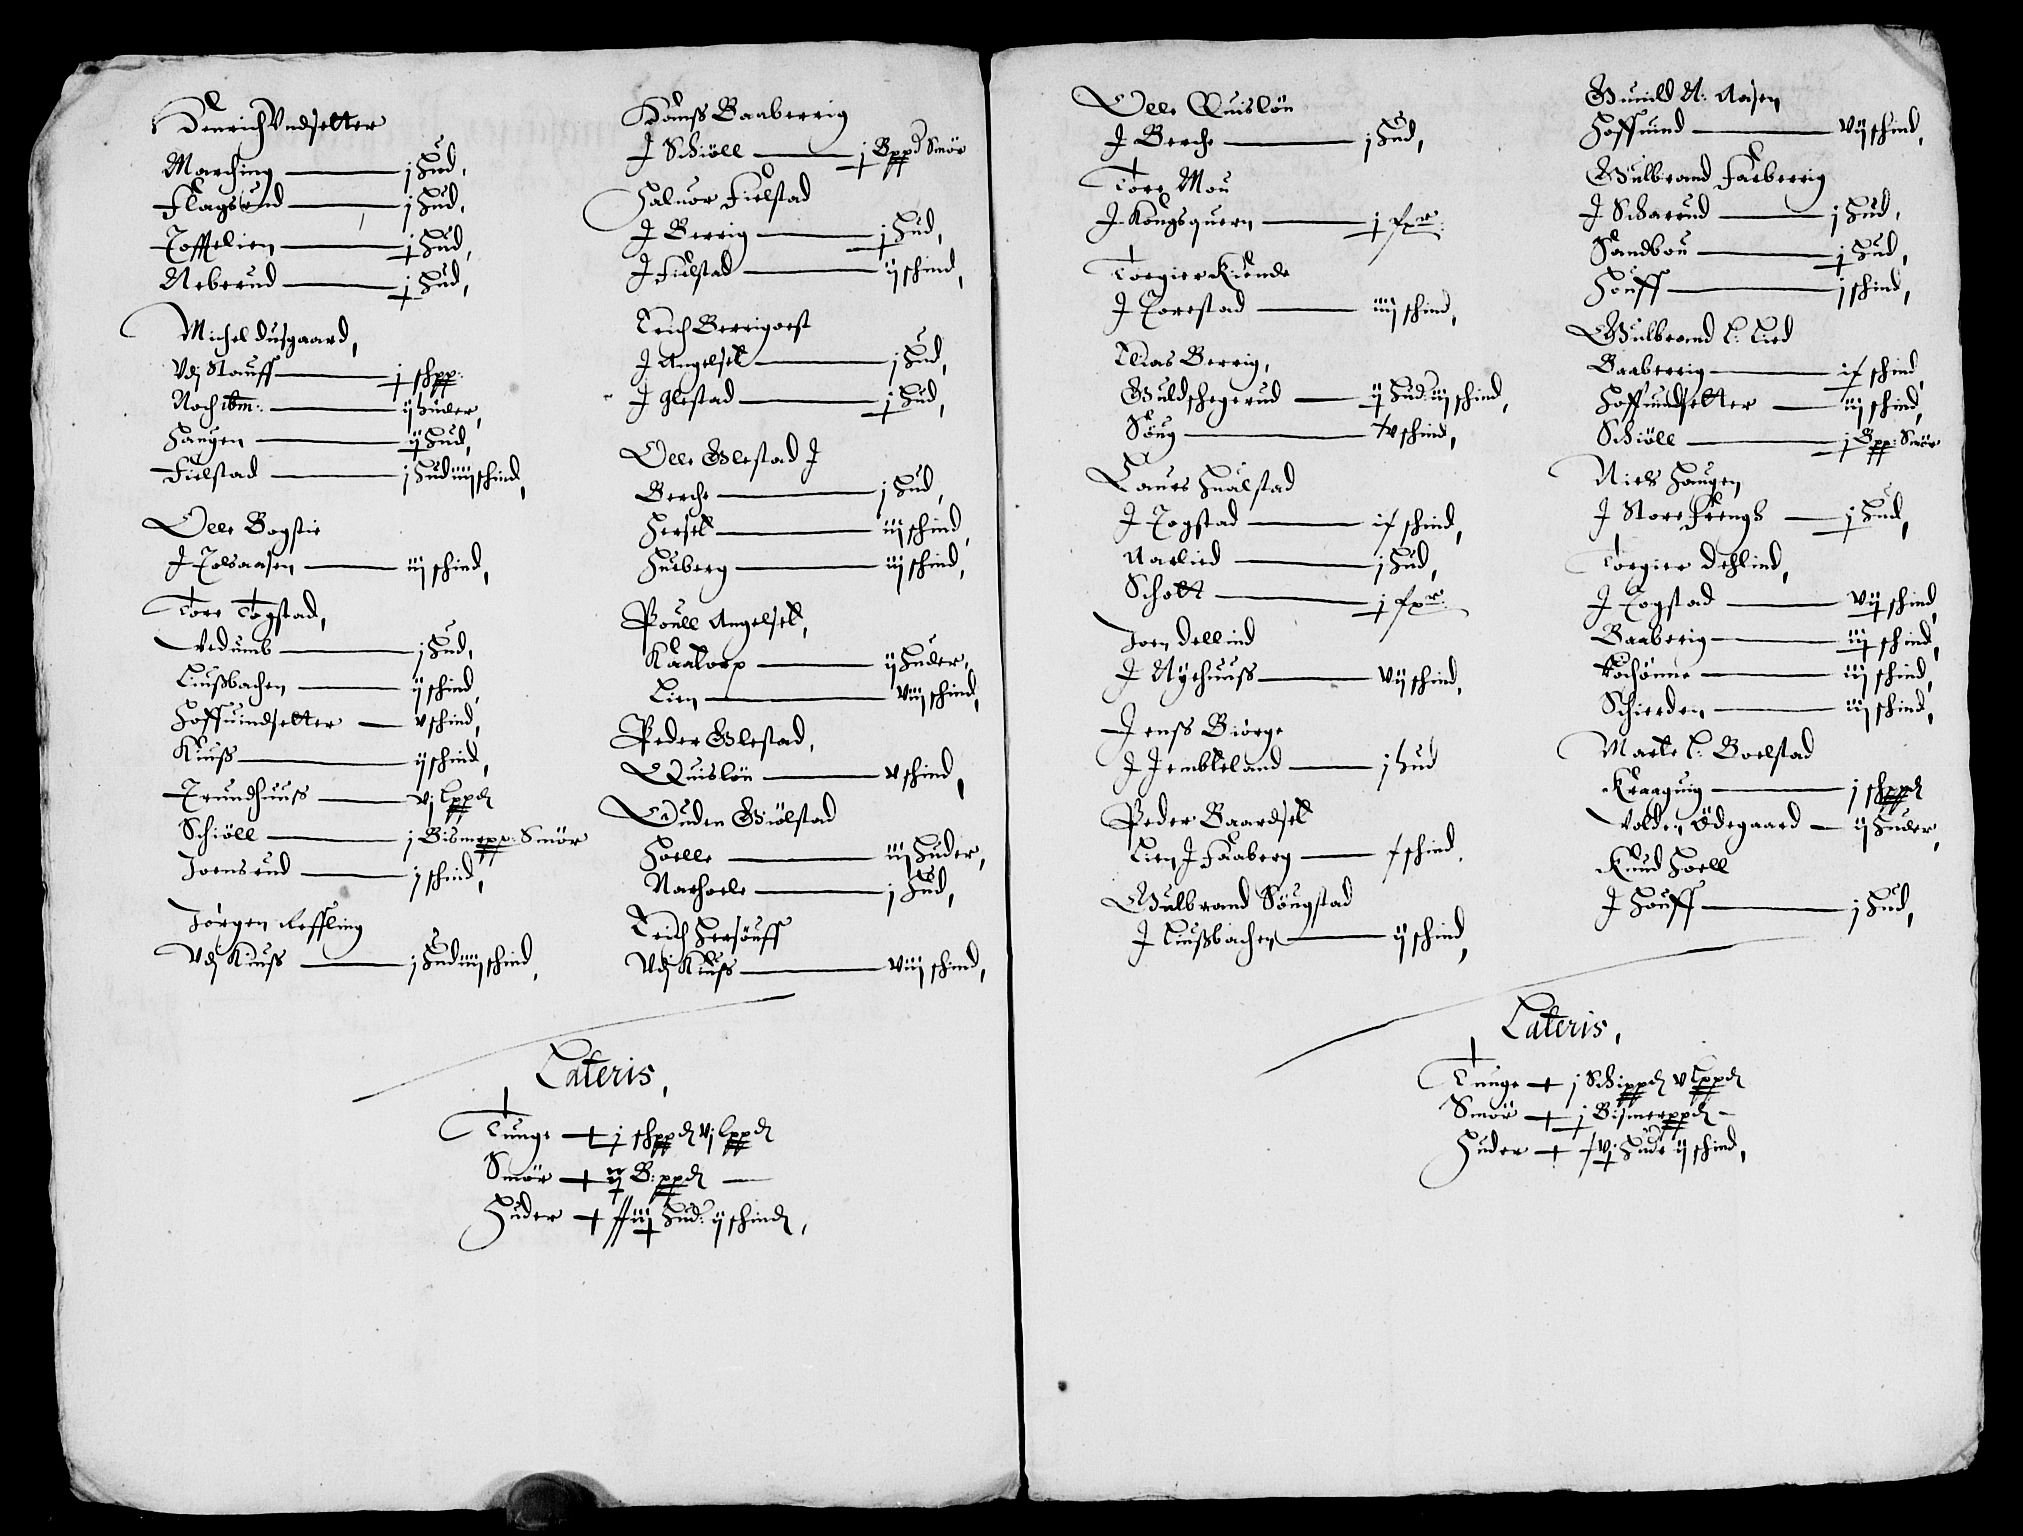 Henrich Undseltter
Marching — j Hud,
Flagsrud — j Hud,
Toffelien — j Hud,
Neberud — j Hud,
Michel dusgaard,
Udj Stauff — j schpp:
Noch ibm: — ij huder,
Haugen — ij Hud,
Fielstad — j Hud iiij schind,
Olle Bogstie
J Tolsaasen — iij schind,
Tore Togstad,
Vedumb — j Hud,
Liußbachen — ij schind,
Hoffuindseltter — v schind,
Kiuß — ij schind,
Trundhuuß — vj Lppd
Schiöll — j Bismerpp: Smör
Joensrud — j schind,
Jörgen Reffling
Udj Kiuß — j Hud iiij schind,
Hanß Baaberrig
J Schiöll — j Bppd Smör
Haluor Fielstad
J Berrig — j Hud,
J Fielstad — ij schind,
Erich Berrigoest
J Angelsel — j Hud,
J Glestad — j Hud,
Olle Glestad J
Berche — j Hud,
Hersel — iij schind,
Huberg — iij schind,
Poull Angelsel,
Kaatorp — ij Huder,
Lien — viij schind,
Peder Glestad,
Quislön — v schind,
Auden Giölstad
Hoelle — iij Huder,
Narhoele — j Hud,
Erich Hersöuff
Udj Kiuß — viij schind,
Lateris,
Tunge — j schppd vj Lppd
Smör — ij B: ppd —
Huder — iij Hud: ij schind,
Olle Quislön
J Berche — j Hud,
Tore Mou
J Kongsquern — j fxr:
Torgier Kiende
J Torestad — iiij schind,
Clias Berrig,
Guldschegerud — ij Hud: iij schind,
Söug — v schind,
Laurs Hualstad
J Togstad — schind,
Narlied — j Hud,
Schott — j fxr:
Joen dellind
J Nyehuuß — vij schind,
Jenß Biörge
J Jembteland — j hud
Peder Baardsel
Lien J Faaberg — schind.
Gulbrand Söugstad
J Liußbachen — ij schind,
Gunild A: Aasen
Hoffuind — vij schind,
Gulbrand Faaberrig
J Scharud — j Hud,
Sandbou — j Hud,
Houff — j schind,
Gulbrand L: Lied
Baaberrig — schind
Hoffuindseltter — iij schind,
Schiöll — j Bpp: Smör
Niels Haugen
J Store Frengs — j Hud,
Torgier dehlind,
J Togstad — vij schind,
Baaberig — iij schind,
Kochönne — iij schind,
Schierden — iij schind,
Marte L: Boelstad
Kraaguig — j schppd
Volden Ödegaard — ij Huder,
Knud Hoell
J Houff — j Hud,
Lateris,
Tunge — j Schippd v Lppd
Smör — j Bismerppd —
Huder — vj Hude ij schind,